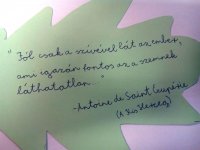 "Jól csak a szívével lát az ember,
ami igazán fontos az a szemnek
láthatatlan..."
-Antoine de Saint Exupérie
(A kis Herceg)